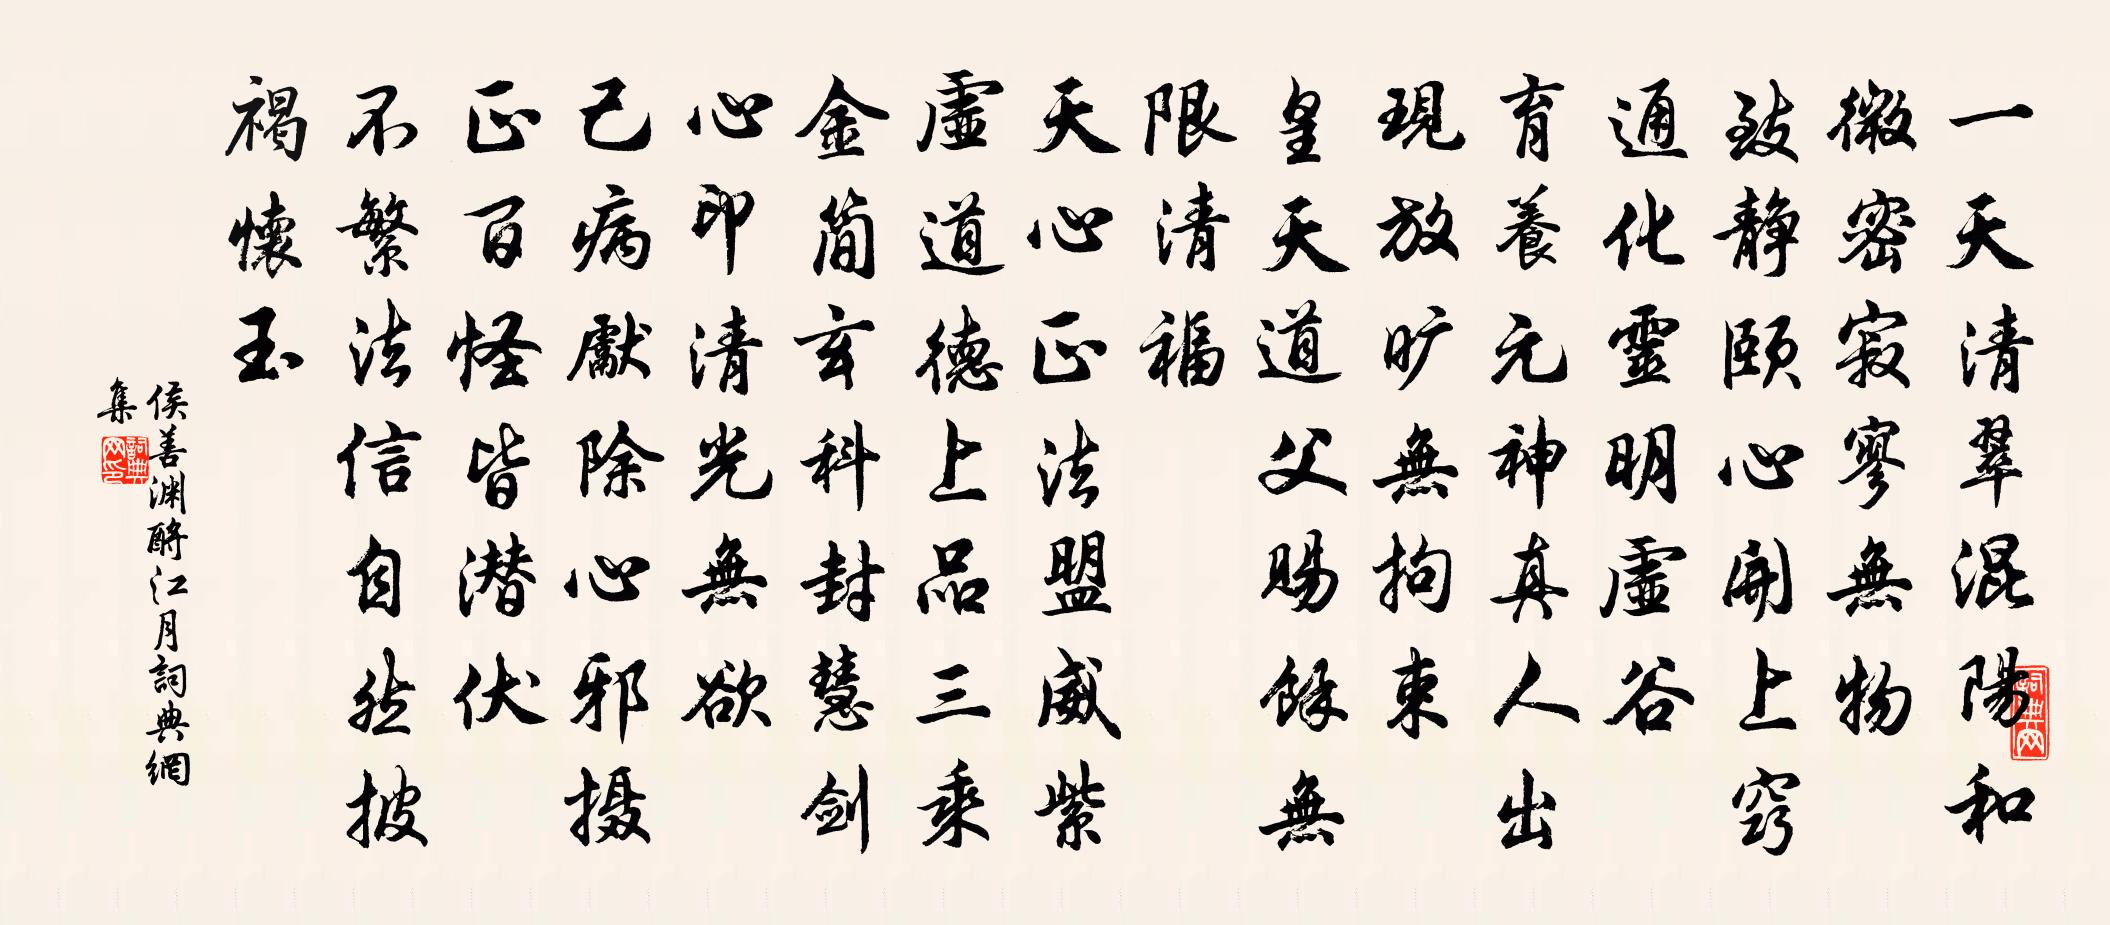 一天清翠混陽和
微密寂寥無物
致静頤心開上窍
通化靈明虛谷
育養元神真人出
現放旷無拘束
皇天道父賜餘無
限清福
天心正法盟威紫
虛道德上品三乘
金简玄科封慧剑
心印清光無欲
己病獻除心邪摄
正百怪皆潜伏
不繁法信自然披
褐懷玉
侯善渊酹江月詞典網
集
詞典网
詞典网印